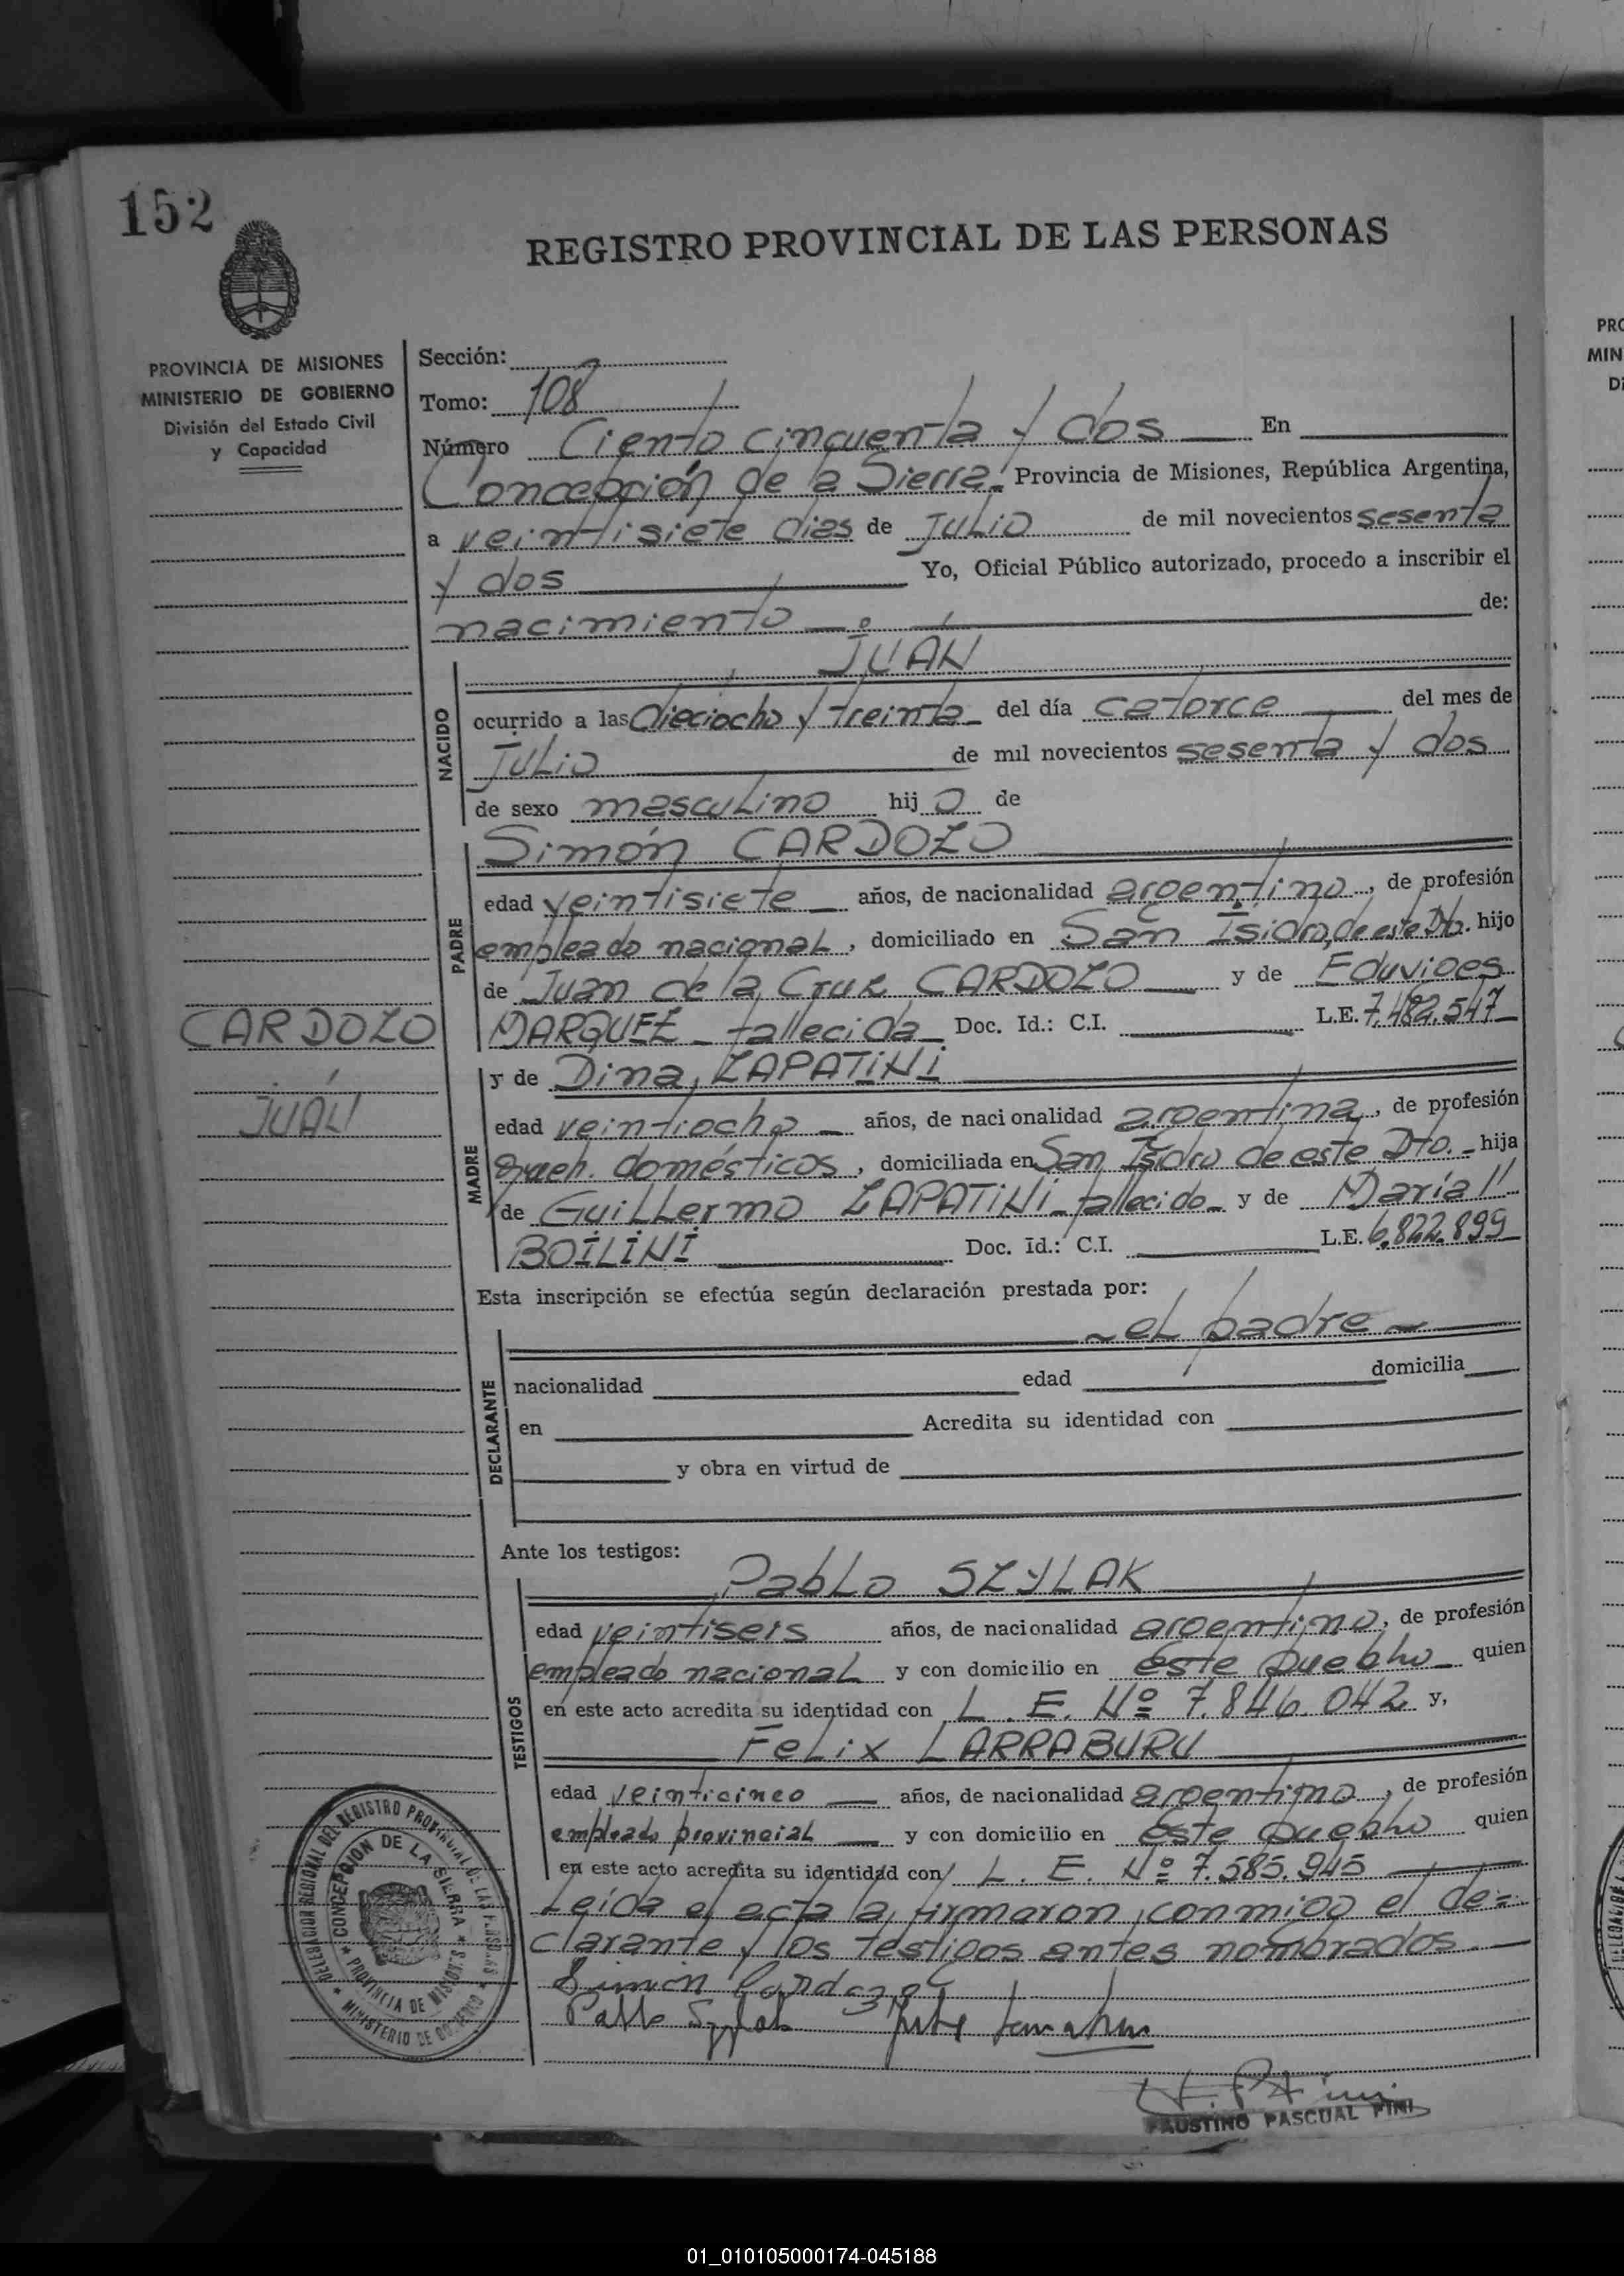 152
REGISTRO PROVINCIAL DE LAS PERSONAS
PROVINCIA DE MISIONES
MINISTERIO DE GOBIERNO
División del Estado Civil
y Capacidad
CARDOZO
JUAN
Sección:
Tomo: 108
Número Ciento cincuenta y dos En
Concepción de la Sierra Provincia de Misiones, República Argentina,
a veintisiete dias de Julio de mil novecientos sesenta
y dos Yo, Oficial Público autorizado, procedo a inscribir el
nacimiento de:
NACIDO
JUAN
ocurrido a las Dieciocho y treinta del día catorce del mes de
Julio de mil novecientos sesenta y dos
de sexo masculino hijo de
PADRE
Simón CARDOZO
edad veintisiete años, de nacionalidad argentino, de profesión
empleado nacional, domiciliado en San Isidro, de este Dto. hijo
de Juan de la Cruz CARDOZO y de Eduviges
MARQUEZ - fallecida Doc. Id.: C.I. L.E. 7.482.547
MADRE
y de Dina, ZAPATINI
edad veintiocho años, de nacionalidad argentina, de profesión
queh. domésticos, domiciliada en San Isidro de este Dto. - hija
de Guillermo ZAPATINI - fallecido - y de María
BOILINI Doc. Id.: C.I. L.E. 6.822.899
Esta inscripción se efectúa según declaración prestada por:
el padre
DECLARANTE
nacionalidad edad domicilia
en Acredita su identidad con
y obra en virtud de
Ante los testigos:
TESTIGOS
Pablo SZYLAK
edad veintiseis años, de nacionalidad argentino, de profesión
empleado nacional y con domicilio en este pueblo quien
en este acto acredita su identidad con L. E. Nº 7.846.042 y,
Felix LARRABURU
edad veinticinco años, de nacionalidad argentino, de profesión
empleado provincial y con domicilio en este pueblo quien
en este acto acredita su identidad con L. E. Nº 7.585.945
Leída el acta la firmaron conmigo el de=
clarante y los testigos antes nombrados.
Simón Cardozo
Pablo Szylak
FAUSTINO PASCUAL PINI
DELEGACION REGIONAL DEL REGISTRO PROVINCIAL DE LAS PERSONAS
MINISTERIO DE GOBIERNO
CONCEPCION DE LA SIERRA
PROVINCIA DE MISIONES
PRO
MIN
Di
01_010105000174-045188